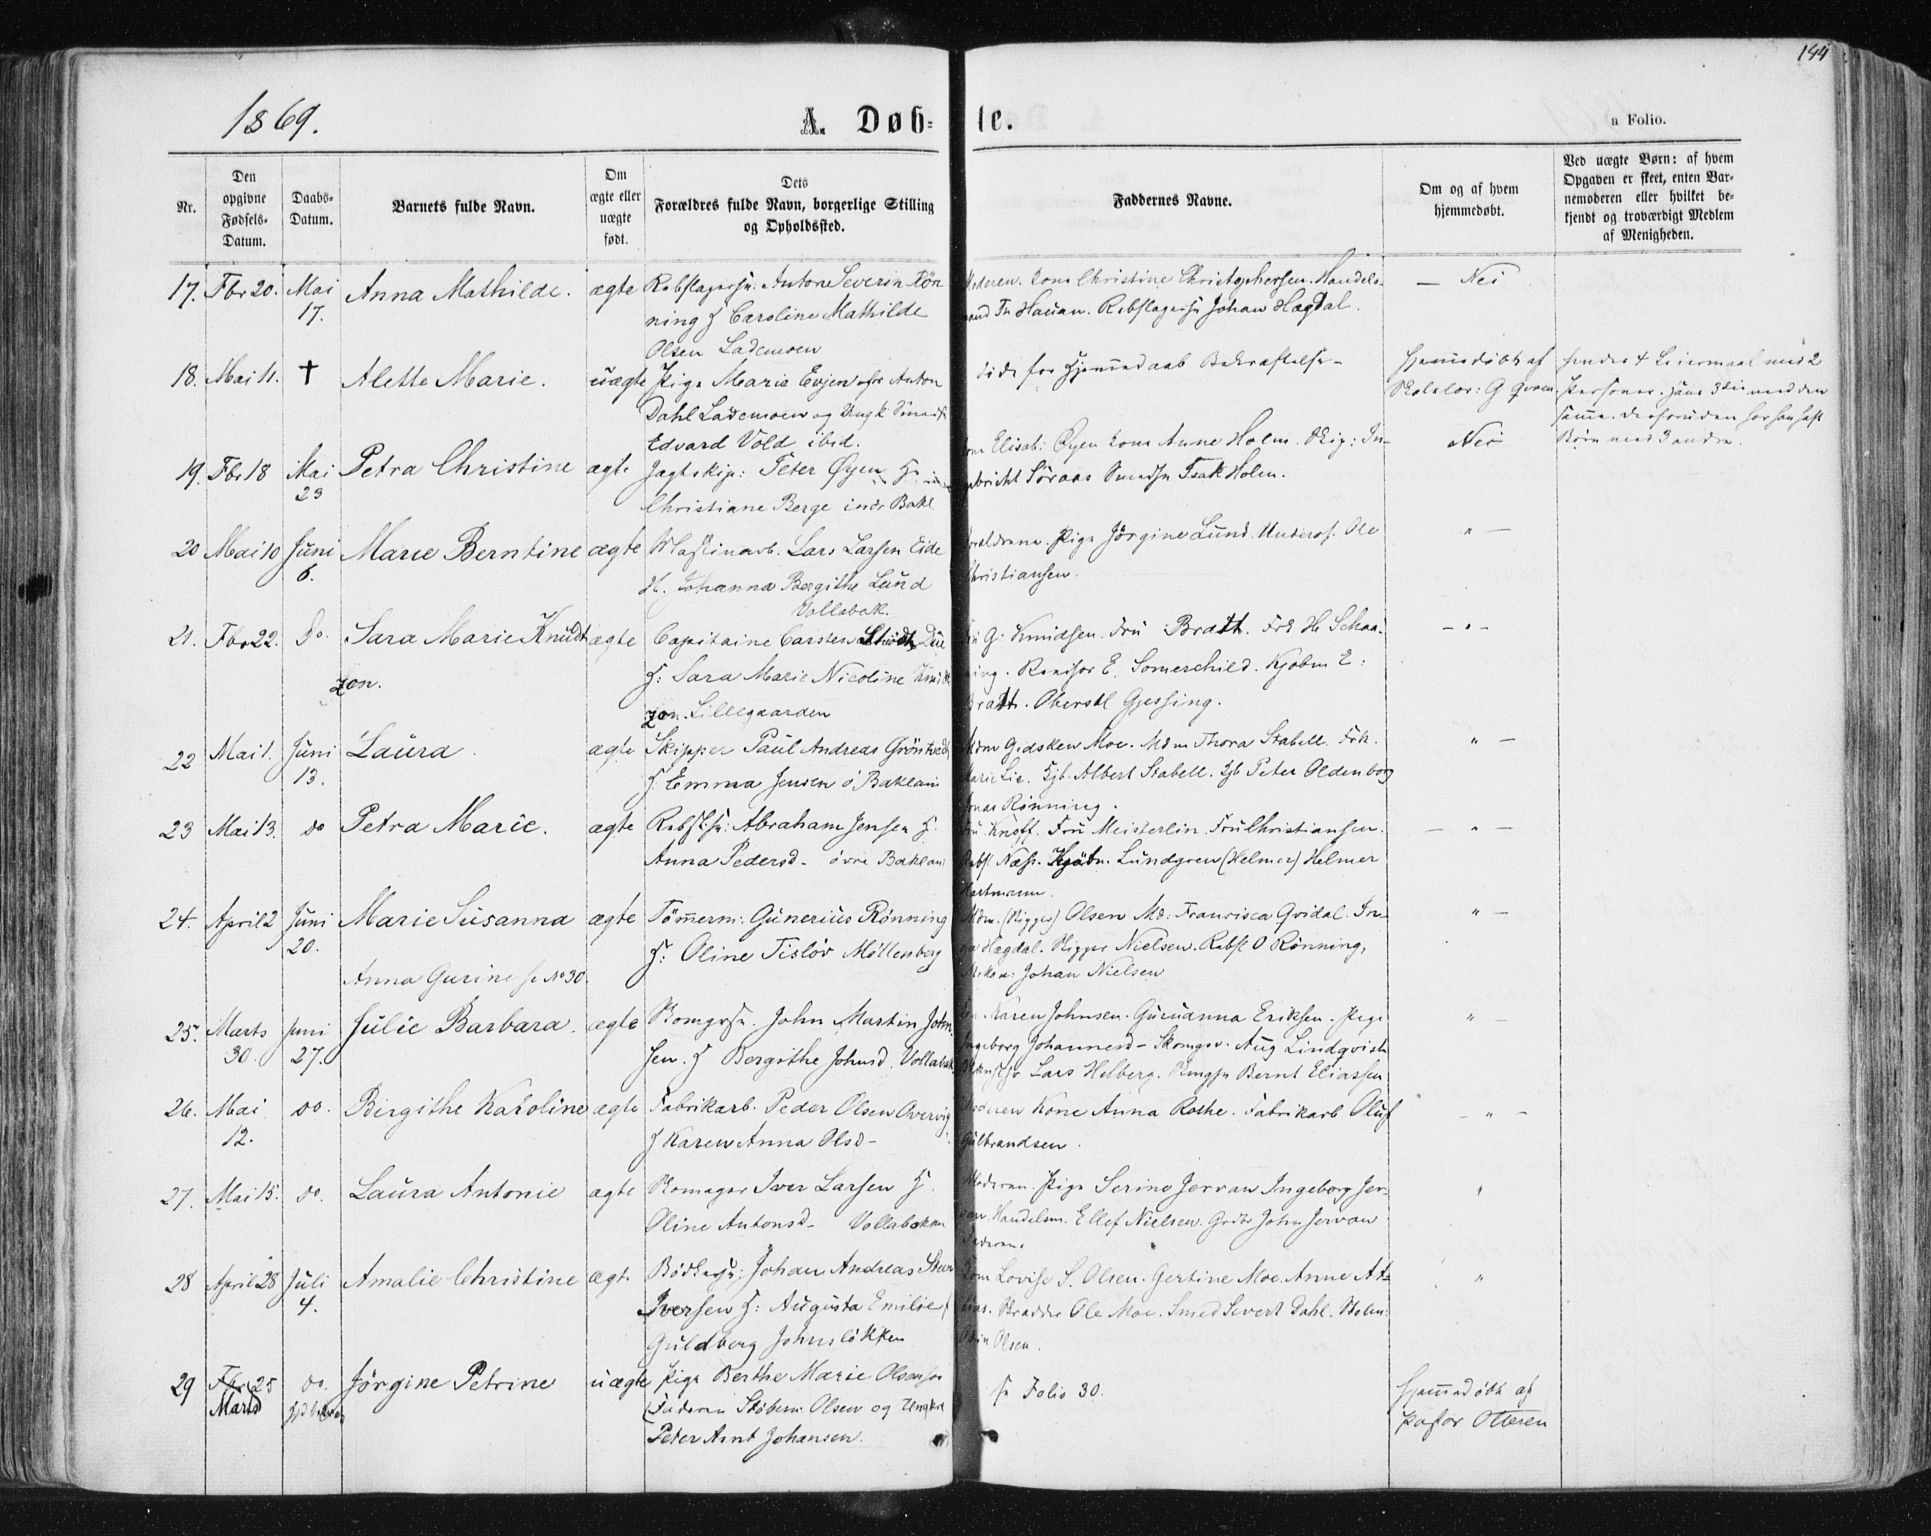 144
1869.
A. Døb- te.
a Folio.
Nr.
Den opgivne Fødsels-Datum.
Daabs-Datum.
Barnets fulde Navn.
Om ægte eller uægte født.
Dets Forældres fulde Navn, borgerlige Stilling og Opholdssted.
Faddernes Navne.
Om og af hvem hjemmedøbt.
Ved uægte Børn: af hvem Opgaven er skeet, enten Barnemoderen eller hvilket bekjendt og troværdigt Medlem af Menigheden.
17. Fbr 20. Mai 17. Anna Mathilde. ægte Rebslagersv. Anton Severin Røn
ning H Caroline Mathilde
Olsen Lademoen
Moderen. Kone Christine Christophersen. Handels-
mand Hauan. Rebslagersv Johan Hagdal.
— Nei
18. Mai 11. † Alette Marie. uægte Pige Marie Evjen Anton
Dahl Lademoen og Ungk Smed
Edvard Vold ibid.
døde før Hjemmedaab Bekræftelse
Hjemmedøbt af
Skolelær: G Qvam
hendes 4 Leiermaal med 2
Personer. Hans 3die med den
samme. desforuden har han havt
Børn med 3 andre.
19. Fbr 18 Mai 23 Petra Christine ægte Jagtskip: Peter Øyen H
Christiane Berge indr Bakl
Elisab: Øyen Kone Anne Holm. Skip: In-
gebricht Søraas Smedsv Isak Holm.
Nei
20 Mai 10 Juni 6. Marie Berntine ægte Maskinarb. Lars Larsen Eide
H. Johanna Bergithe Lund
Vollabak.
Forældrene. Pige Jørgine Lund. Underof. Ole
Christiansen.
" —
21. Fbr 22. do. Sara Marie Knudt
zon. ægte Capitaine Carsten Due
H: Sara Marie Nicoline Knudt
zon. Lillegaarden
Fru G. Knudsen. Fru Bratt. Frk H. Schaa-
ning. Revisor E. Somerchild. Kjøbm E:
Bratt. Oberstl Gjessing.
— " —
22 Mai 1. Juni 13. Laura. ægte Skipper Paul Andreas Grøntvedt
H. Emma Jensen ø Baklan
Mdm Gidsken Moe. Mdm Thora Stabell. Frk.
Marie Lie. Kjb. Albert Stabell. Kjb Peter Oldenborg
Jonas Rønning.
" —
23 Mai 13. do Petra Marie. ægte Rebslsv: Abraham Jensen H.
Anna Pedersd— øvre Baklan
Fru Knoff. Fru Meisterlin. Fru Christiansen.
Rebsl Næss. Kjøbm. Lundgren (Helmer) Helmer
Hartmann.
— " —
24. April 2 Juni 20. Marie Susanna ægte Tømmerm: Gunerius Rønning
H: Oline Tisløv Møllenberg
Mdm. (Rigger) Olsen Md: Francisca Qvidal. In-
ga Hagdal. Rigger Nielsen. Rebsl O Rønning,
Johan Nielsen
" —
Anna Gurine se No 30.
25. Marts 30. Juni 27. Julie Barbara. ægte Skomgrsv. John Martin John-
sen. H Bergithe Johnsd. Vollabak
Karen Johnsen. Guruanna Eriksen. Pige
Ingeborg Johannesd— Skomgr. Aug Lindqvist
Lars Helberg. Bernt Eliassen
" —
26. Mai 12. do. Birgithe Karoline ægte Fabrikarb. Peder Olsen Overvig
H Karen Anna Olsd—
Moderen Kone Anna Rothe. Fabrikarb Oluf
Gulbrandsen.
— " —
27. Mai 15. do. Laura Antonie ægte Skomager Iver Larsen H.
Oline Antonsd— Vollabakken
Moderen. Pige Serine Jervan Ingeborg Jer-
van. Handelsm. Ellef Nielsen. Grdbr John Jervan
Faderen.
"
28 April 28 Juli 4. Amalie Christine ægte Bødkersv: Johan Andreas Steen
Iversen H: Augusta Emilie
Guldberg Johnsløkken
Kone Lovise S. Olsen. Gertine Moe. Anne At-
Ole Moe. Smed Sivert Dahl.
Odin Olsen.
"
29 Fbr 25 Marts do. Jørgine Petrine uægte Pige Berthe Marie Olsen
Faderen Støberm: Olsen og Ungkrl
Peter Arnt Johansen.
se Folio 30.
Hjemmedøbt af
Pastor Ottesen